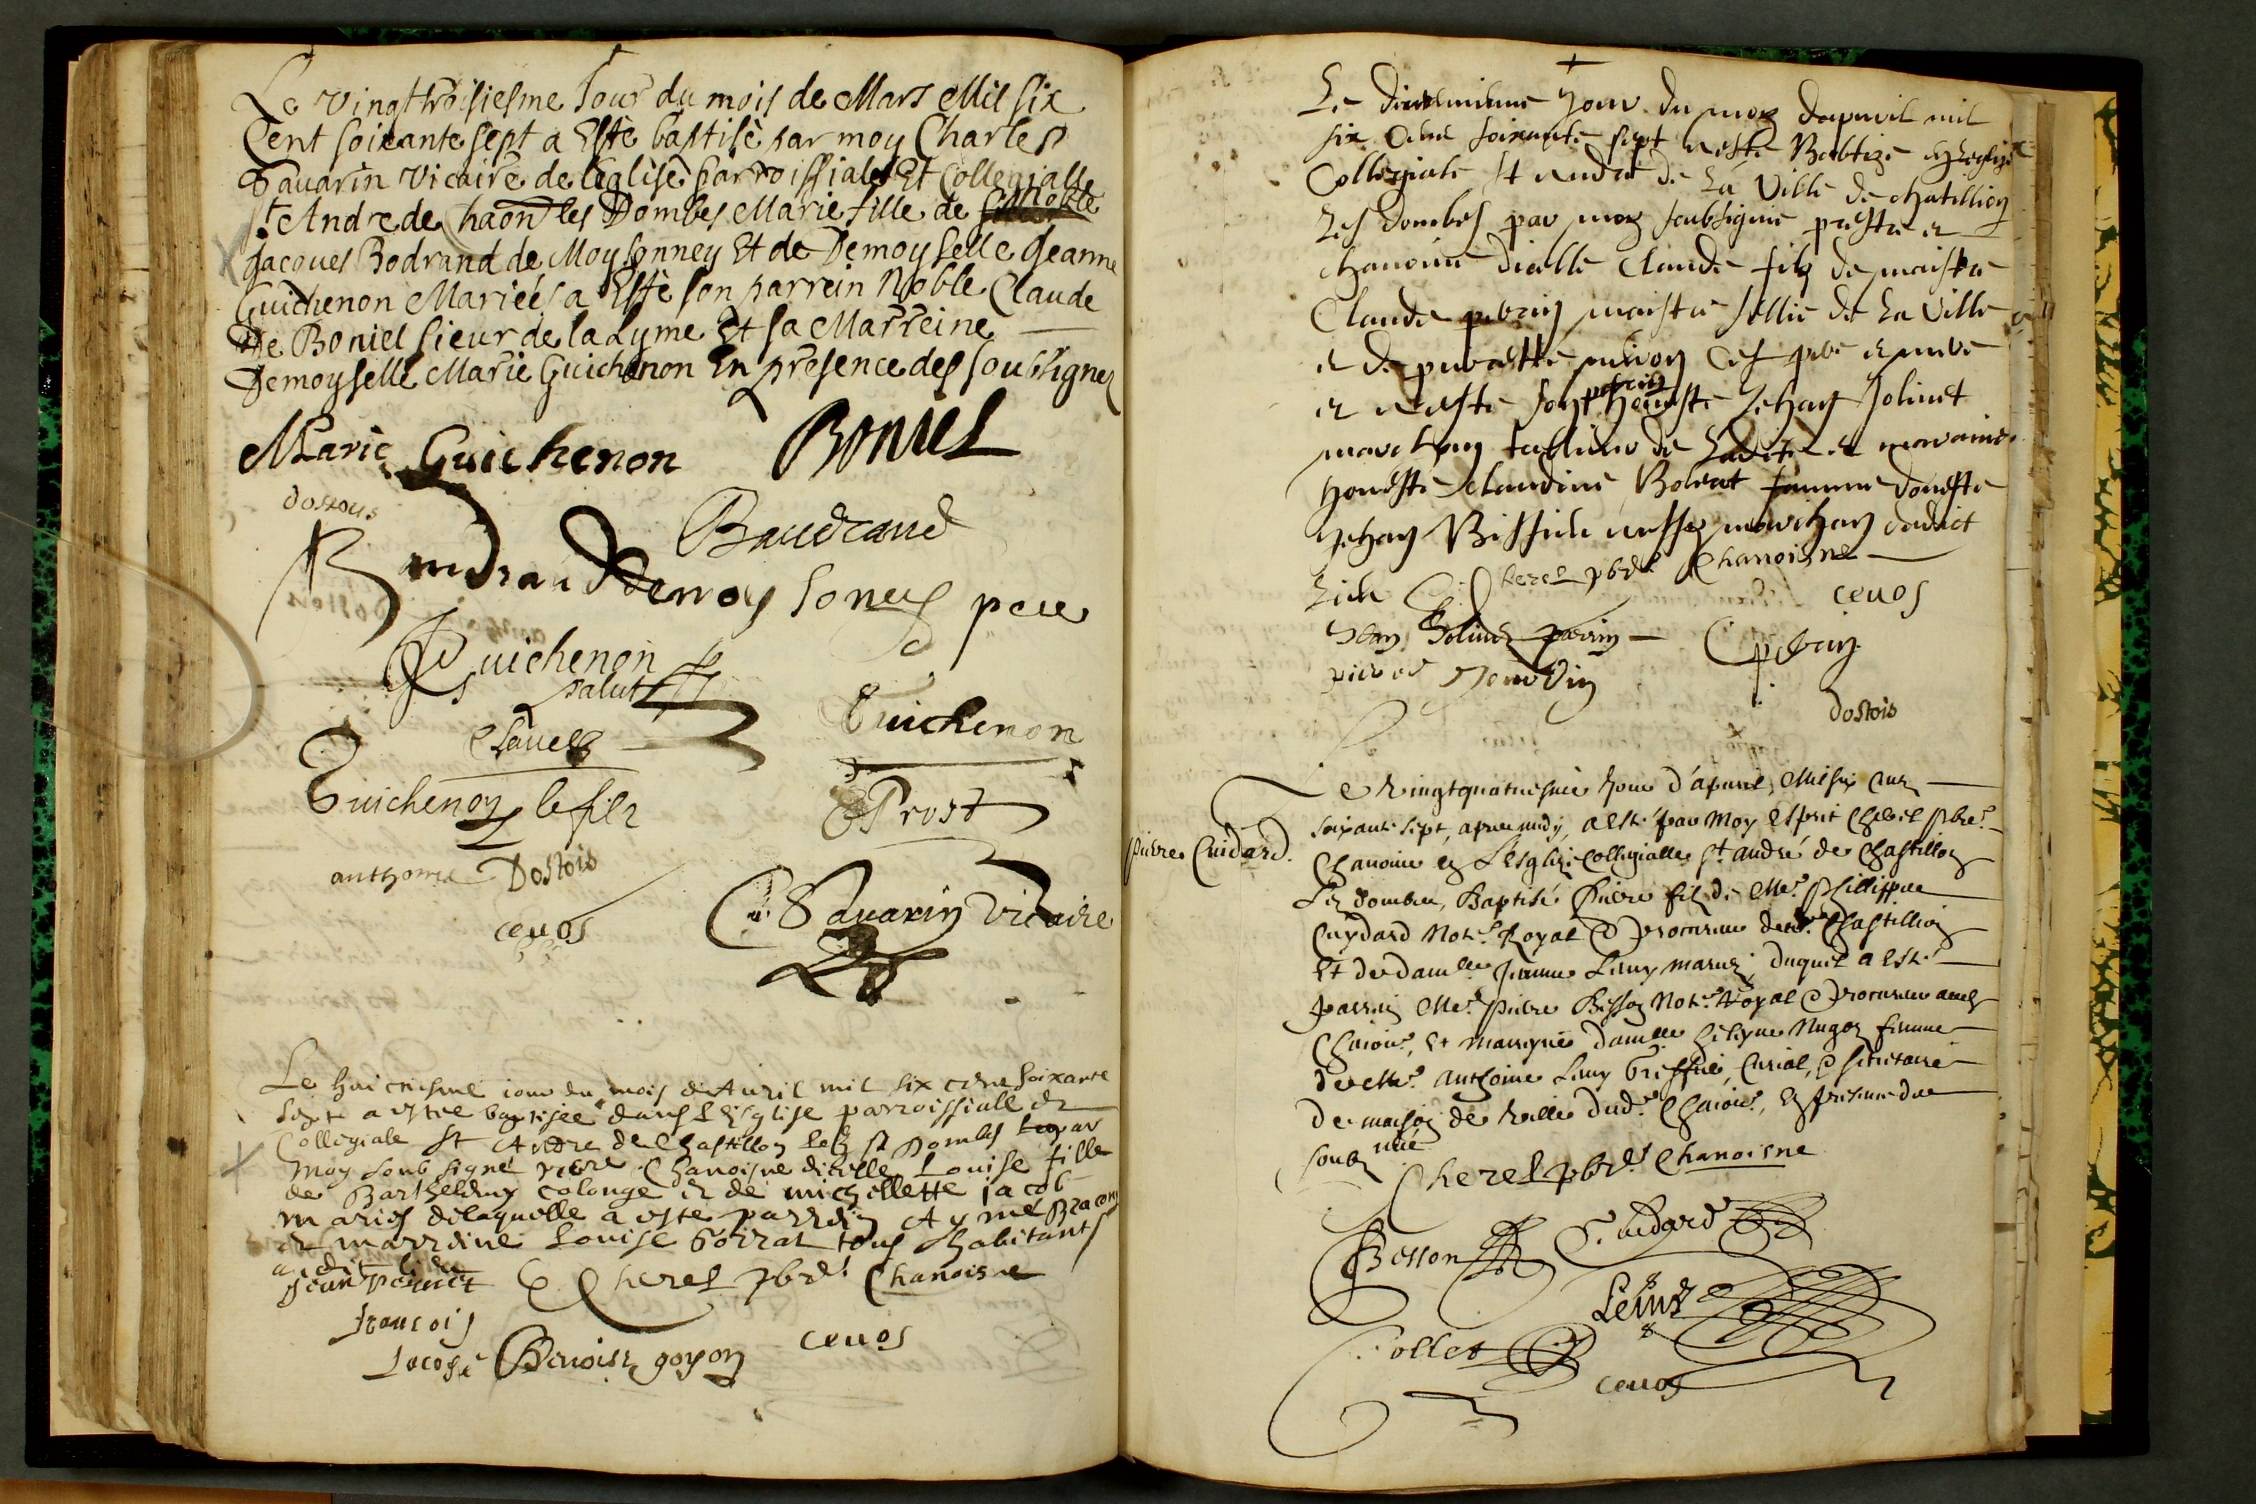 Le vingttroisiesme Jour du mois de Mars Mil six
Cent soixante sept a Esté baptisé par moy Charles
Savarin Vicaire de leglise parroissiale Et Collegialle
St. Andre de Chaon les Dombes Marie fille de Noble
Jacques Bodrand de Moysonney Et de Demoyselle Jeanne
Guichenon Mariés a Esté son parrein Noble Claude
De Boniel sieur de la Lyme Et sa Marreine
Demoyselle Marie Guichenon En presence des soubsignez
Marie Guichenon Boniel
dostois
Baudrand
Baudrand de moysoney pere
Guichenon
Salut
Guichenon
Clavel
Guichenon le filz
Prost
anthome Dostois
cevos
C. Savarin Vicaire
Le huictiesme iour du mois de Auril mil six cent soixante
sept a estee baptisée dans l'Esglise parroissiall et
Collegiale St Andre de Chastillon les Dombes par
moy soubsigné pbre Chanoisne dicelle Louise fille
de Barthelemy colonge et de michellette jacob
mariés de laquelle a este parrein Aymé Bracon
et marreine Louise Goirat tous habitants
audit lieu
Jean perret C Cherel pbre Chanoisne
francois
Lacose Benoist goyon cevos
Le jour du moy dapvril mil
six cens soixante sept a esté Babtizé en leglise
Collegiale St andré de La Ville de chatillion
Les dombes par moy soubsigné prestre et
chanoine dicelle Claude filz de maistre
Claude perrin maistre sellie de La Ville
et de ces pere et mere
et a esté son parrin honeste Jehan Jolinet
marchan de Ladite et maraine
honeste Claudine Bolliat famme doneste
Jehan marchan dudict
Lieu C Cherel pbre Chanoisne
cevos
Jean Jolinet parrin C perrin
pierre Jourdin
dostois
Pierre Cuidard.
Le Vingtquatriesme Jour d'apuril, Mil six cens
soixante sept, apres midy, a esté par Moy Esprit Cherel pbre
Chanoine en L'Esglize Collegialle St. André de Chastillon
Les dombes, Baptisé Pierre filz de Me. Phillippe
Cuydard Not.re Royal & Procureur dud. Chastillion
Et de dam.lle Jeanne Leuny mariez, duquel a esté
parrin Me. Pierre Besson Not.re Royal & Procureur aud.
Chaon, Et marrayne dam.lle Heleyne Nugoz femme
de Me. Anthoine Leuny Greffier, Curial, & secretaire
de maison de Ville dud. Chaon, En presence des
soubz.nés
Cherel pbre Chanoisne
Besson Cuidard
Leuny
Collet
cevos